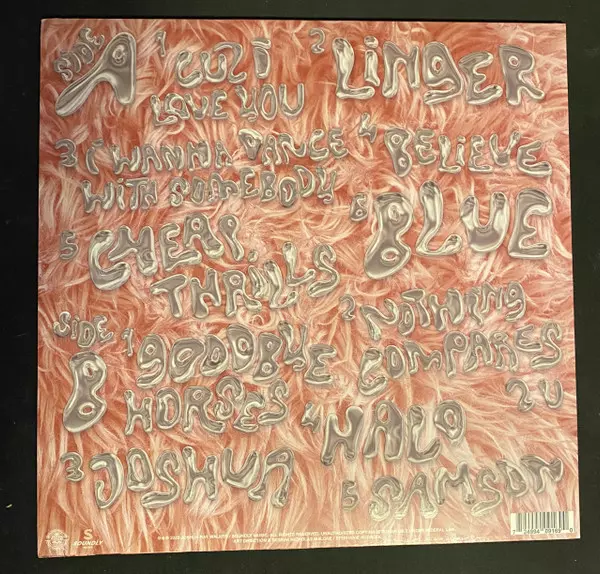 SIDE A
1 CUZ I
LOVE YOU
2 LINGER
3 I WANNA DANCE
WITH SOMEBODY
4 BELIEVE
5 CHEAP
THRILLS
6 BLUE
SIDE B
1 GOODBYE
HORSES
2 NOTHING
COMPARES
2 U
3 JOSHUA
4 HALO
5 SAMSON
S
SOUNDLY